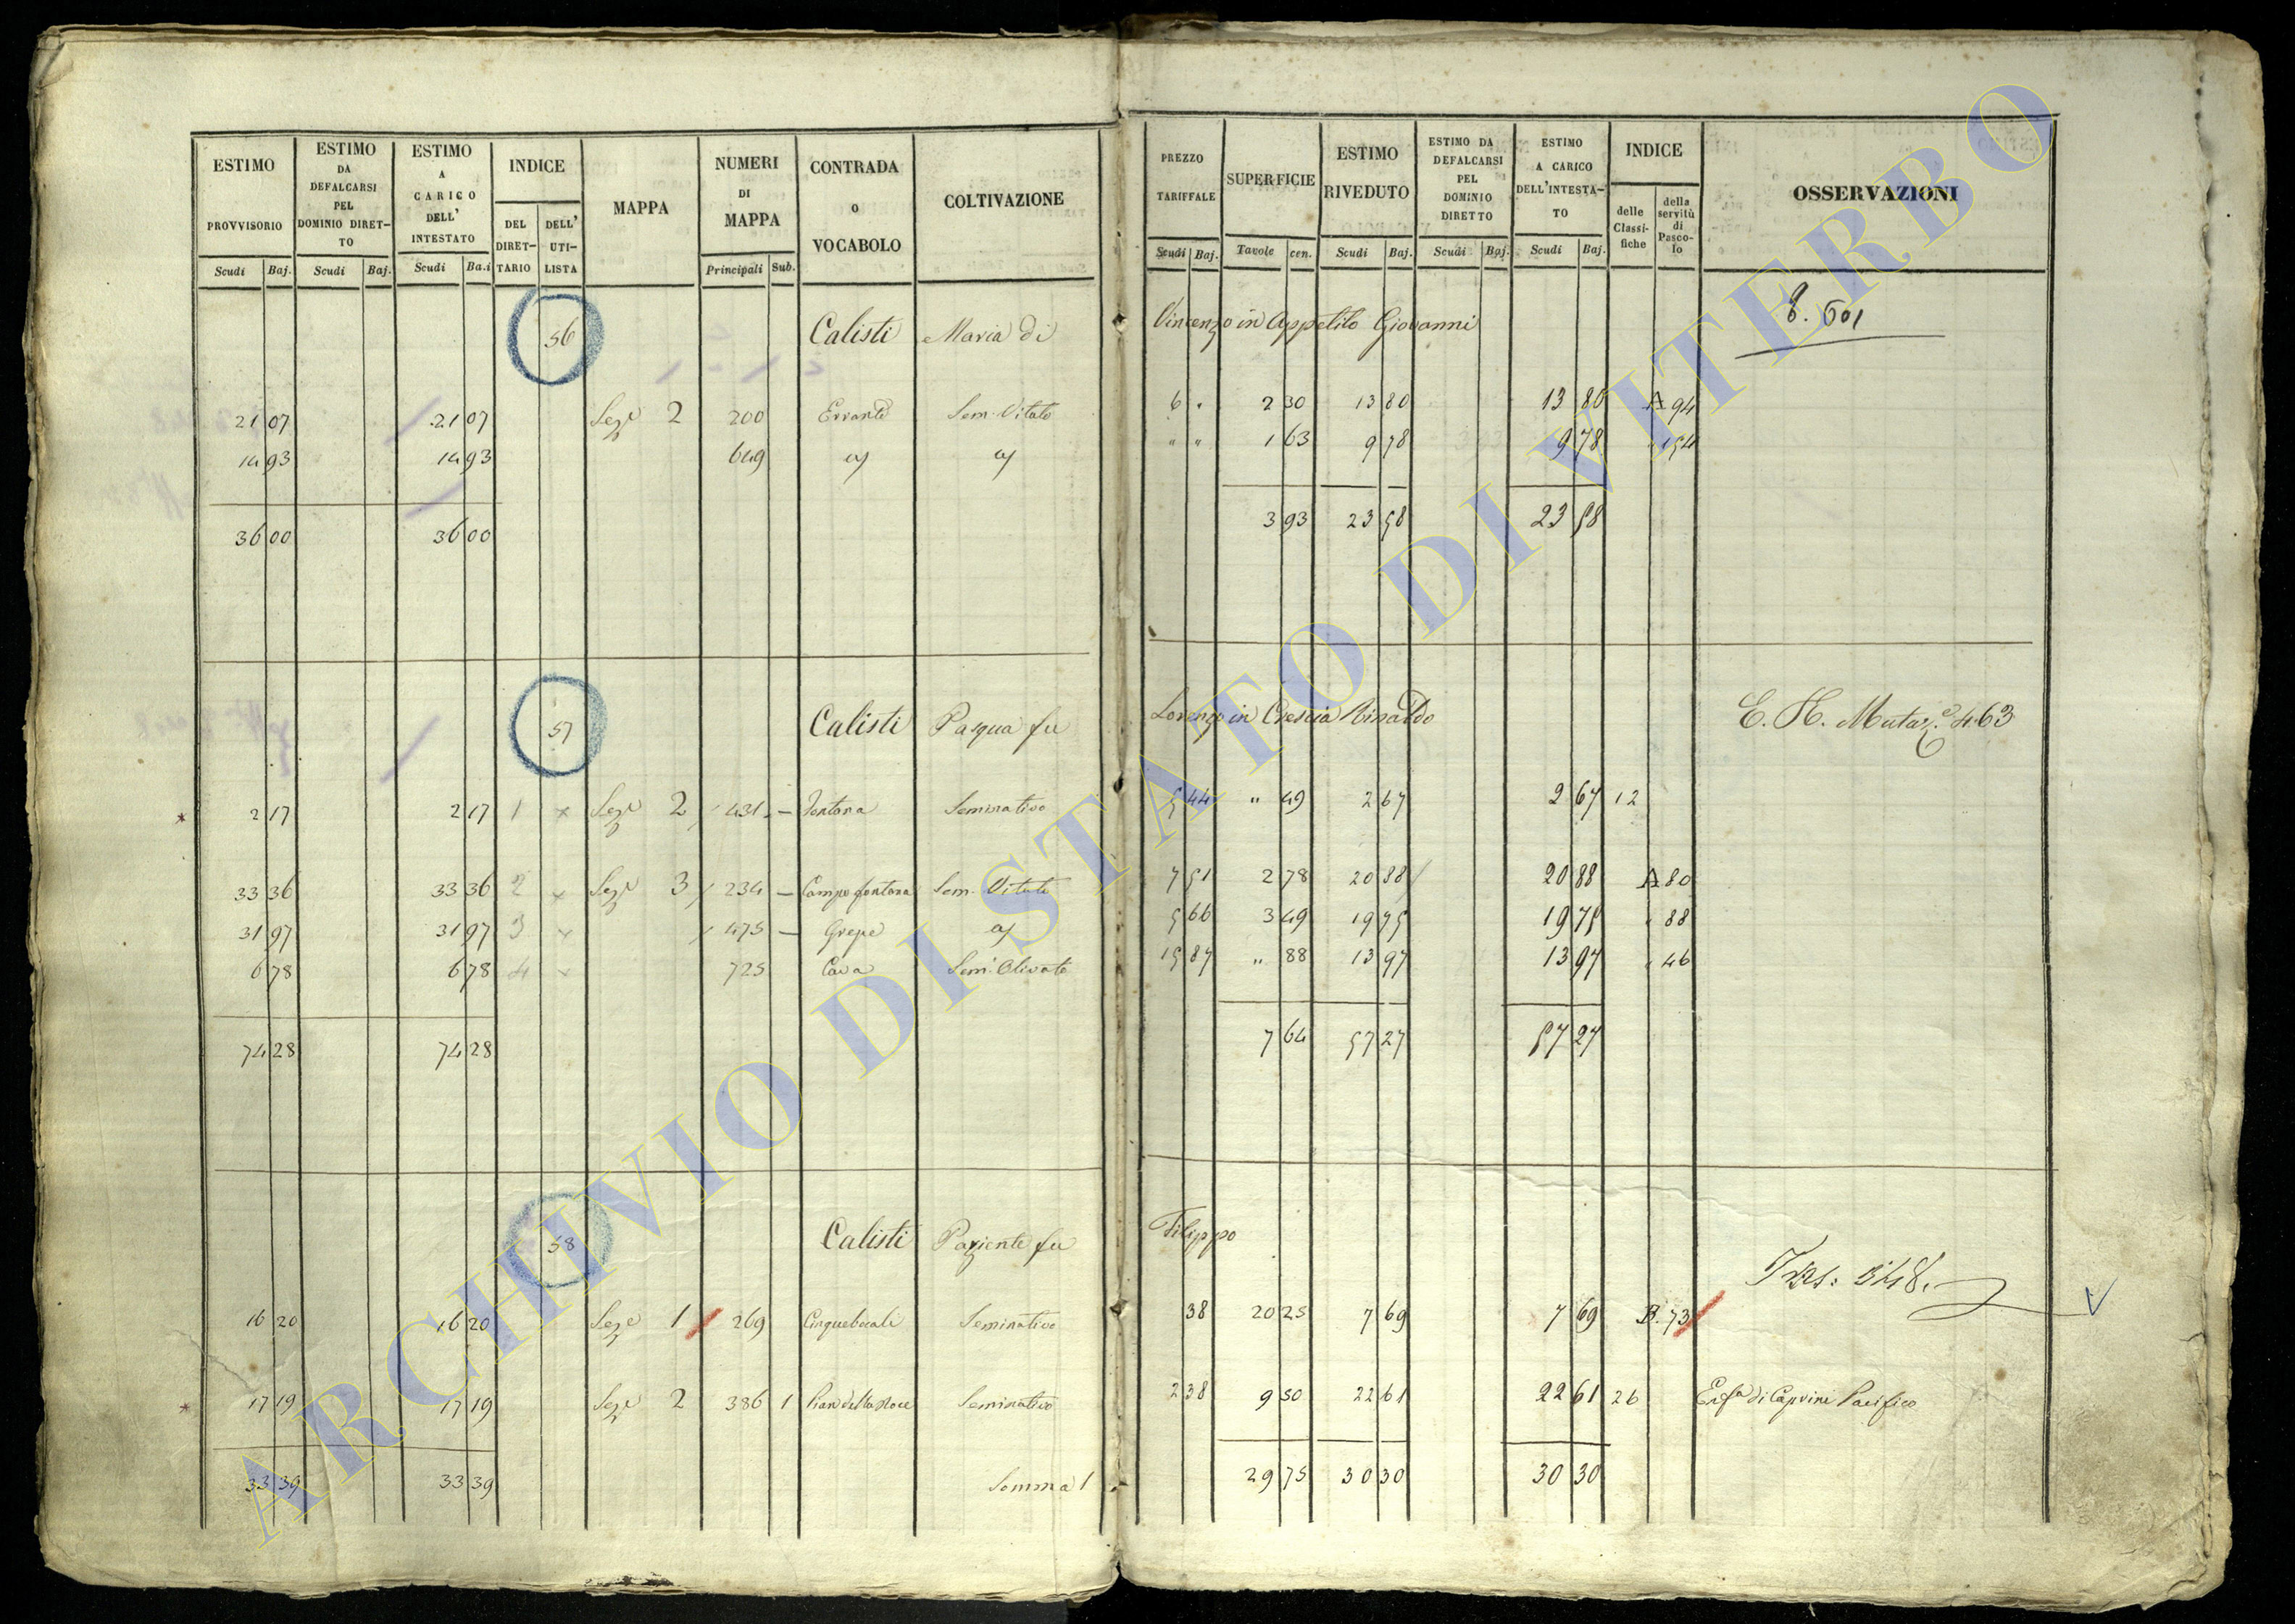 ESTIMO PROVVISORIO | ESTIMO DA DEFALCARSI PEL DOMINIO DIRETTO | ESTIMO A CARICO DELL' INTESTATO | INDICE | MAPPA | NUMERI DI MAPPA | CONTRADA o VOCABOLO | COLTIVAZIONE | PREZZO TARIFFALE | SUPERFICIE | ESTIMO RIVEDUTO | ESTIMO DA DEFALCARSI PEL DOMINIO DIRETTO | ESTIMO A CARICO DELL'INTESTATO | INDICE | OSSERVAZIONI
DEL DIRETTARIO | DELL' UTILISTA | delle Classifiche | della servitù di Pascolo
Scudi | Baj. | Scudi | Baj. | Scudi | Ba.i | Principali | Sub. | Scudi | Baj. | Tavole | cen. | Scudi | Baj. | Scudi | Baj. | Scudi | Baj.
56 Calisti Maria di Vincenzo in Appetito Giovanni
21 07 21 07 Sez.e 2 200 Sem. Vitato 6 " 2 30 13 80 13 80 A 94
14 93 14 93 649 " " 1 63 9 78 9 78 " 154
36 00 36 00 3 93 23 58 23 58
57 Calisti Pasqua fu Lorenzo in Crescia Rinaldo E. H. Mutaz.e 463
2 17 2 17 1 x Sez.e 2 431 — Fontana Seminativo 5 44 " 49 2 67 2 67 12
33 36 33 36 2 x Sez.e 3 234 — Campo fontana Sem. Vitato 7 51 2 78 20 88 20 88 A 80
31 97 31 97 3 x 475 — Grepe 5 66 3 49 19 75 19 75 " 88
6 78 6 78 4 x 725 Cava Sem. Olivato 15 87 " 88 13 97 13 97 " 46
74 28 74 28 7 64 57 27 57 27
58 Calisti Paziente fu Filippo
16 20 16 20 Sez.e 1 269 Seminativo 38 20 25 7 69 7 69 B. 73
17 19 17 19 Sez.e 2 386 1 Pian della Noce Seminativo 2 38 9 50 22 61 22 61 26 Enf.a di Caprini Pacifico
33 39 33 39 Somma 29 75 30 30 30 30
ARCHIVIO DI STATO DI VITERBO